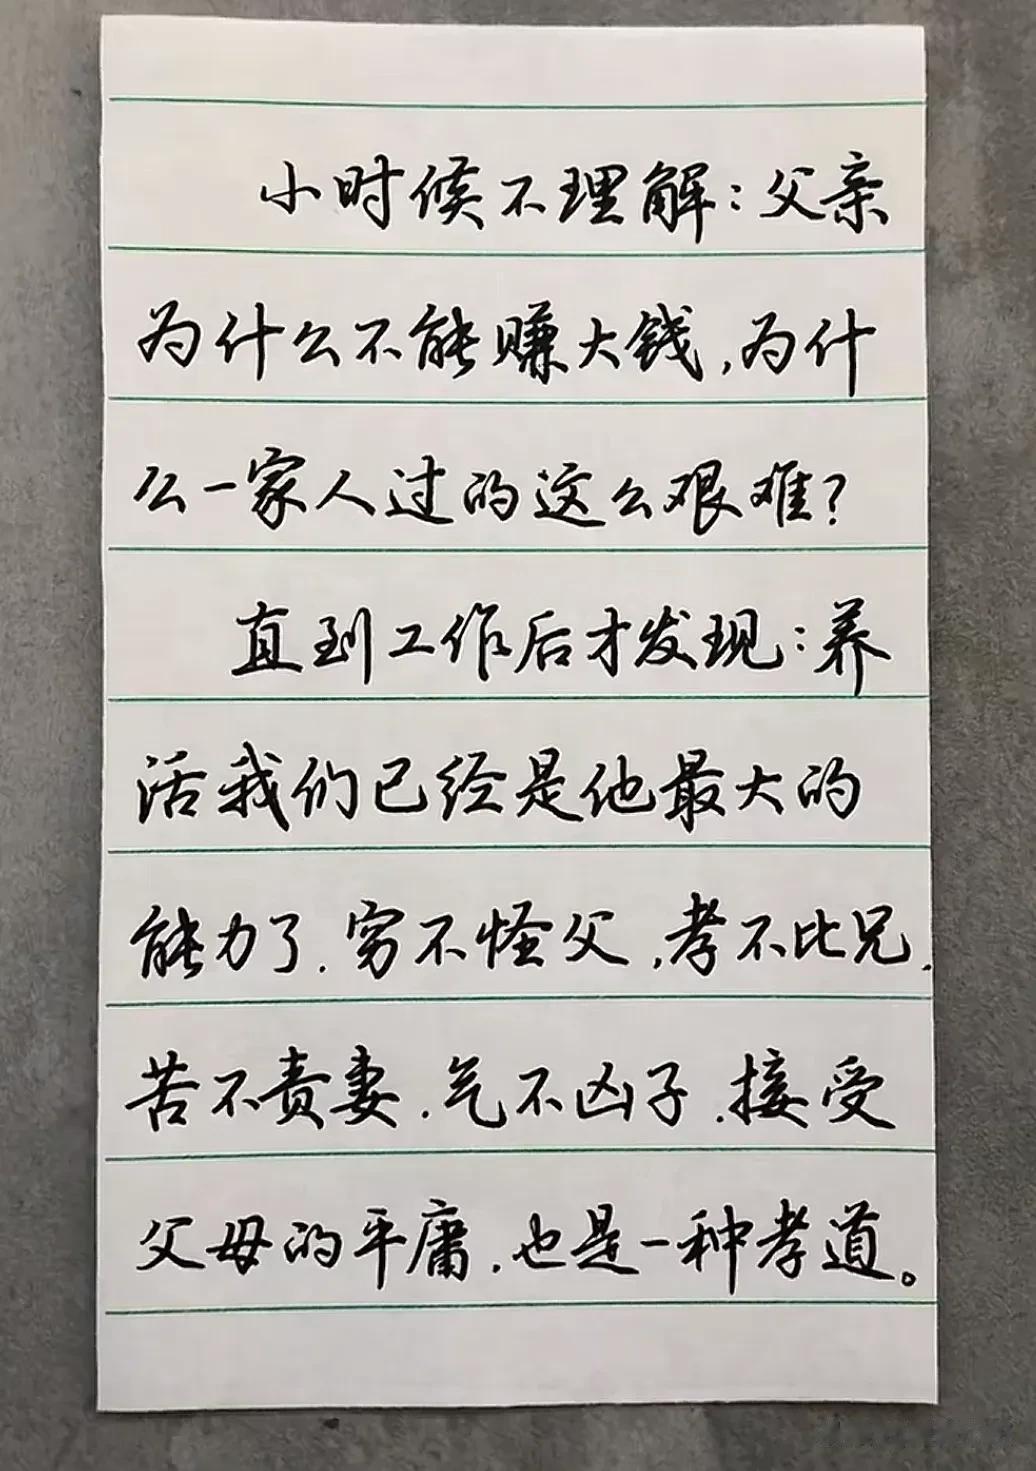 小时候不理解：父亲
为什么不能赚大钱，为什
么一家人过的这么艰难？
直到工作后才发现：养
活我们已经是他最大的
能力了．穷不怪父，孝不比兄．
苦不责妻．气不凶子．接受
父母的平庸．也是一种孝道。